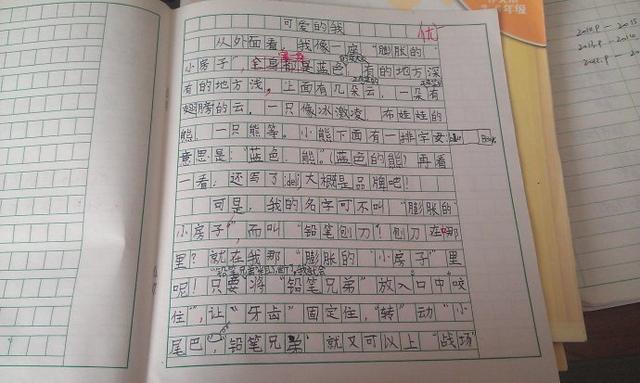 可爱的我
优
从外面看，我像一座“膨胀的
小房子”，全身都是蓝色，有的地方深
有的地方浅，上面有几朵云，一朵有
翅膀的云，一只像冰激凌 布娃娃的
熊，一只熊等。小熊下面有一排字母：blue Bear
意思是：“蓝色，熊。”（蓝色的熊）再看
一看，还写了deli大概是品牌吧！
可是，我的名字可不叫“膨胀的
小房子”，而叫“铅笔刨刀”刨刀在哪
里？就在我那“膨胀的“小房子”里
“铅笔兄弟”粗了，断了，我就会
呢！只要将“铅笔兄弟”放入口中咬
住”，让“牙齿”固定住，“转”动“小
尾巴”，铅笔兄弟 就又可以上“战场”
年级